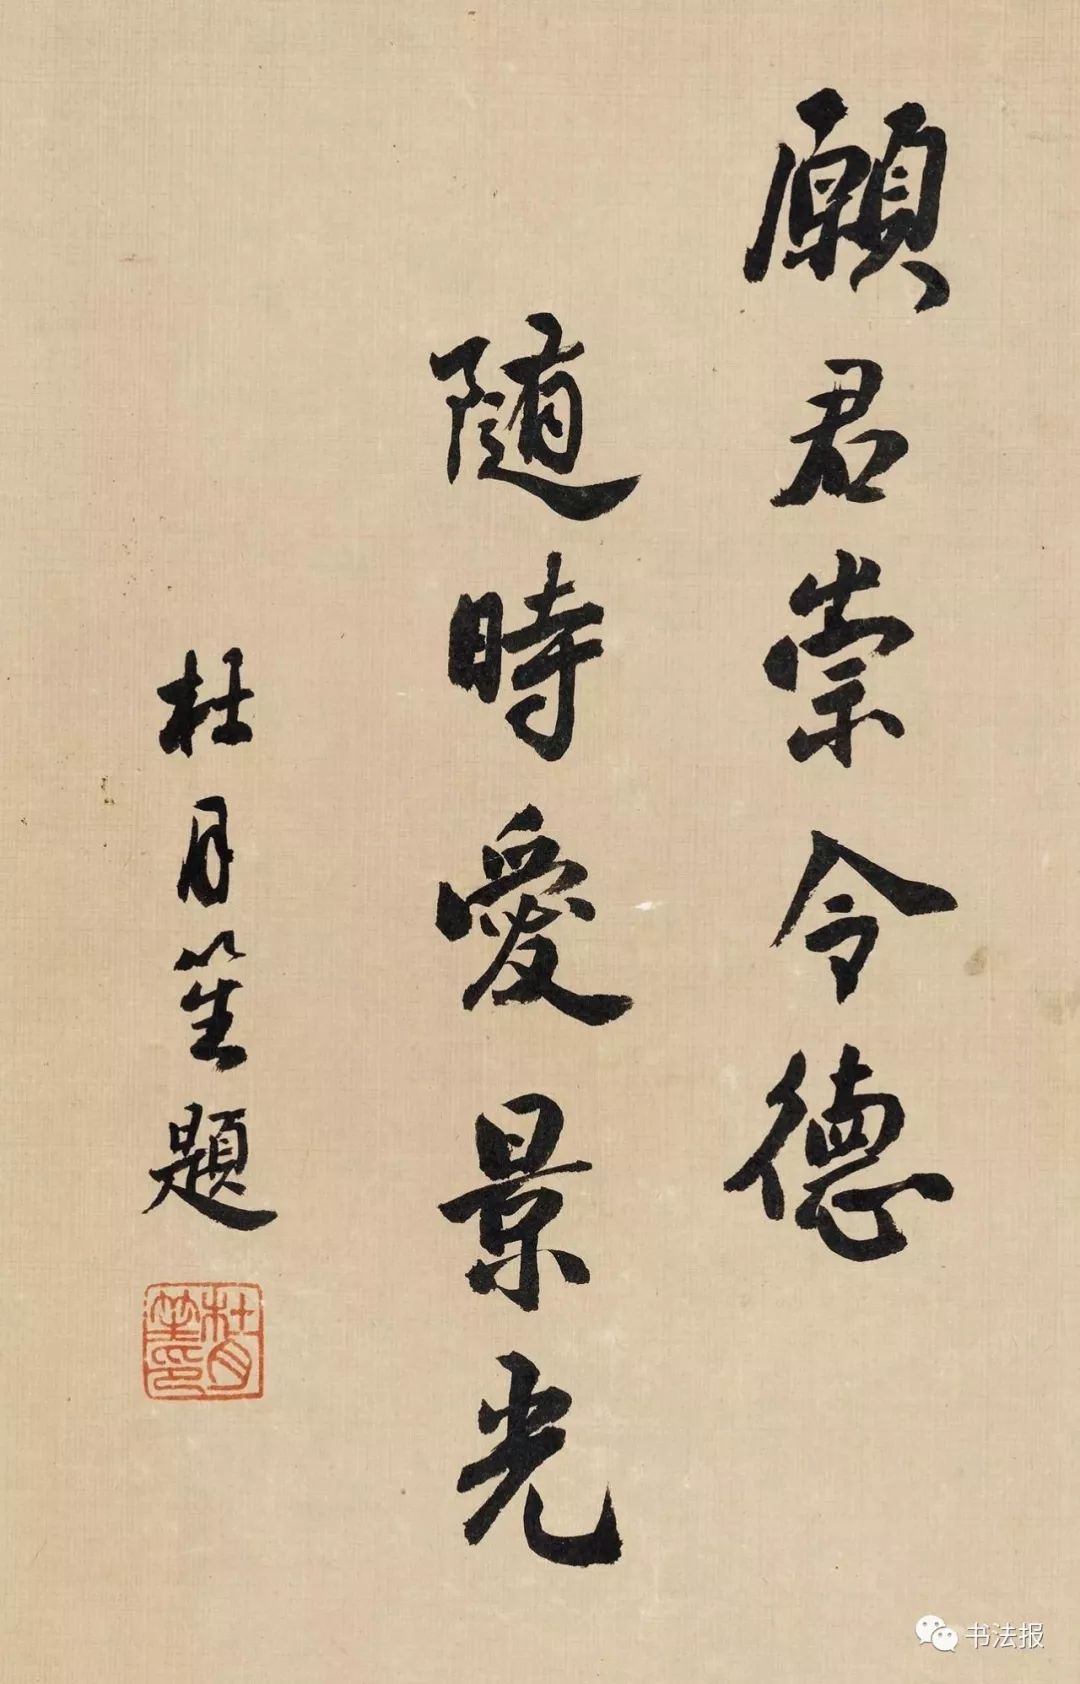 願君崇令德
随時愛景光
杜月笙題
杜月笙印
书法报